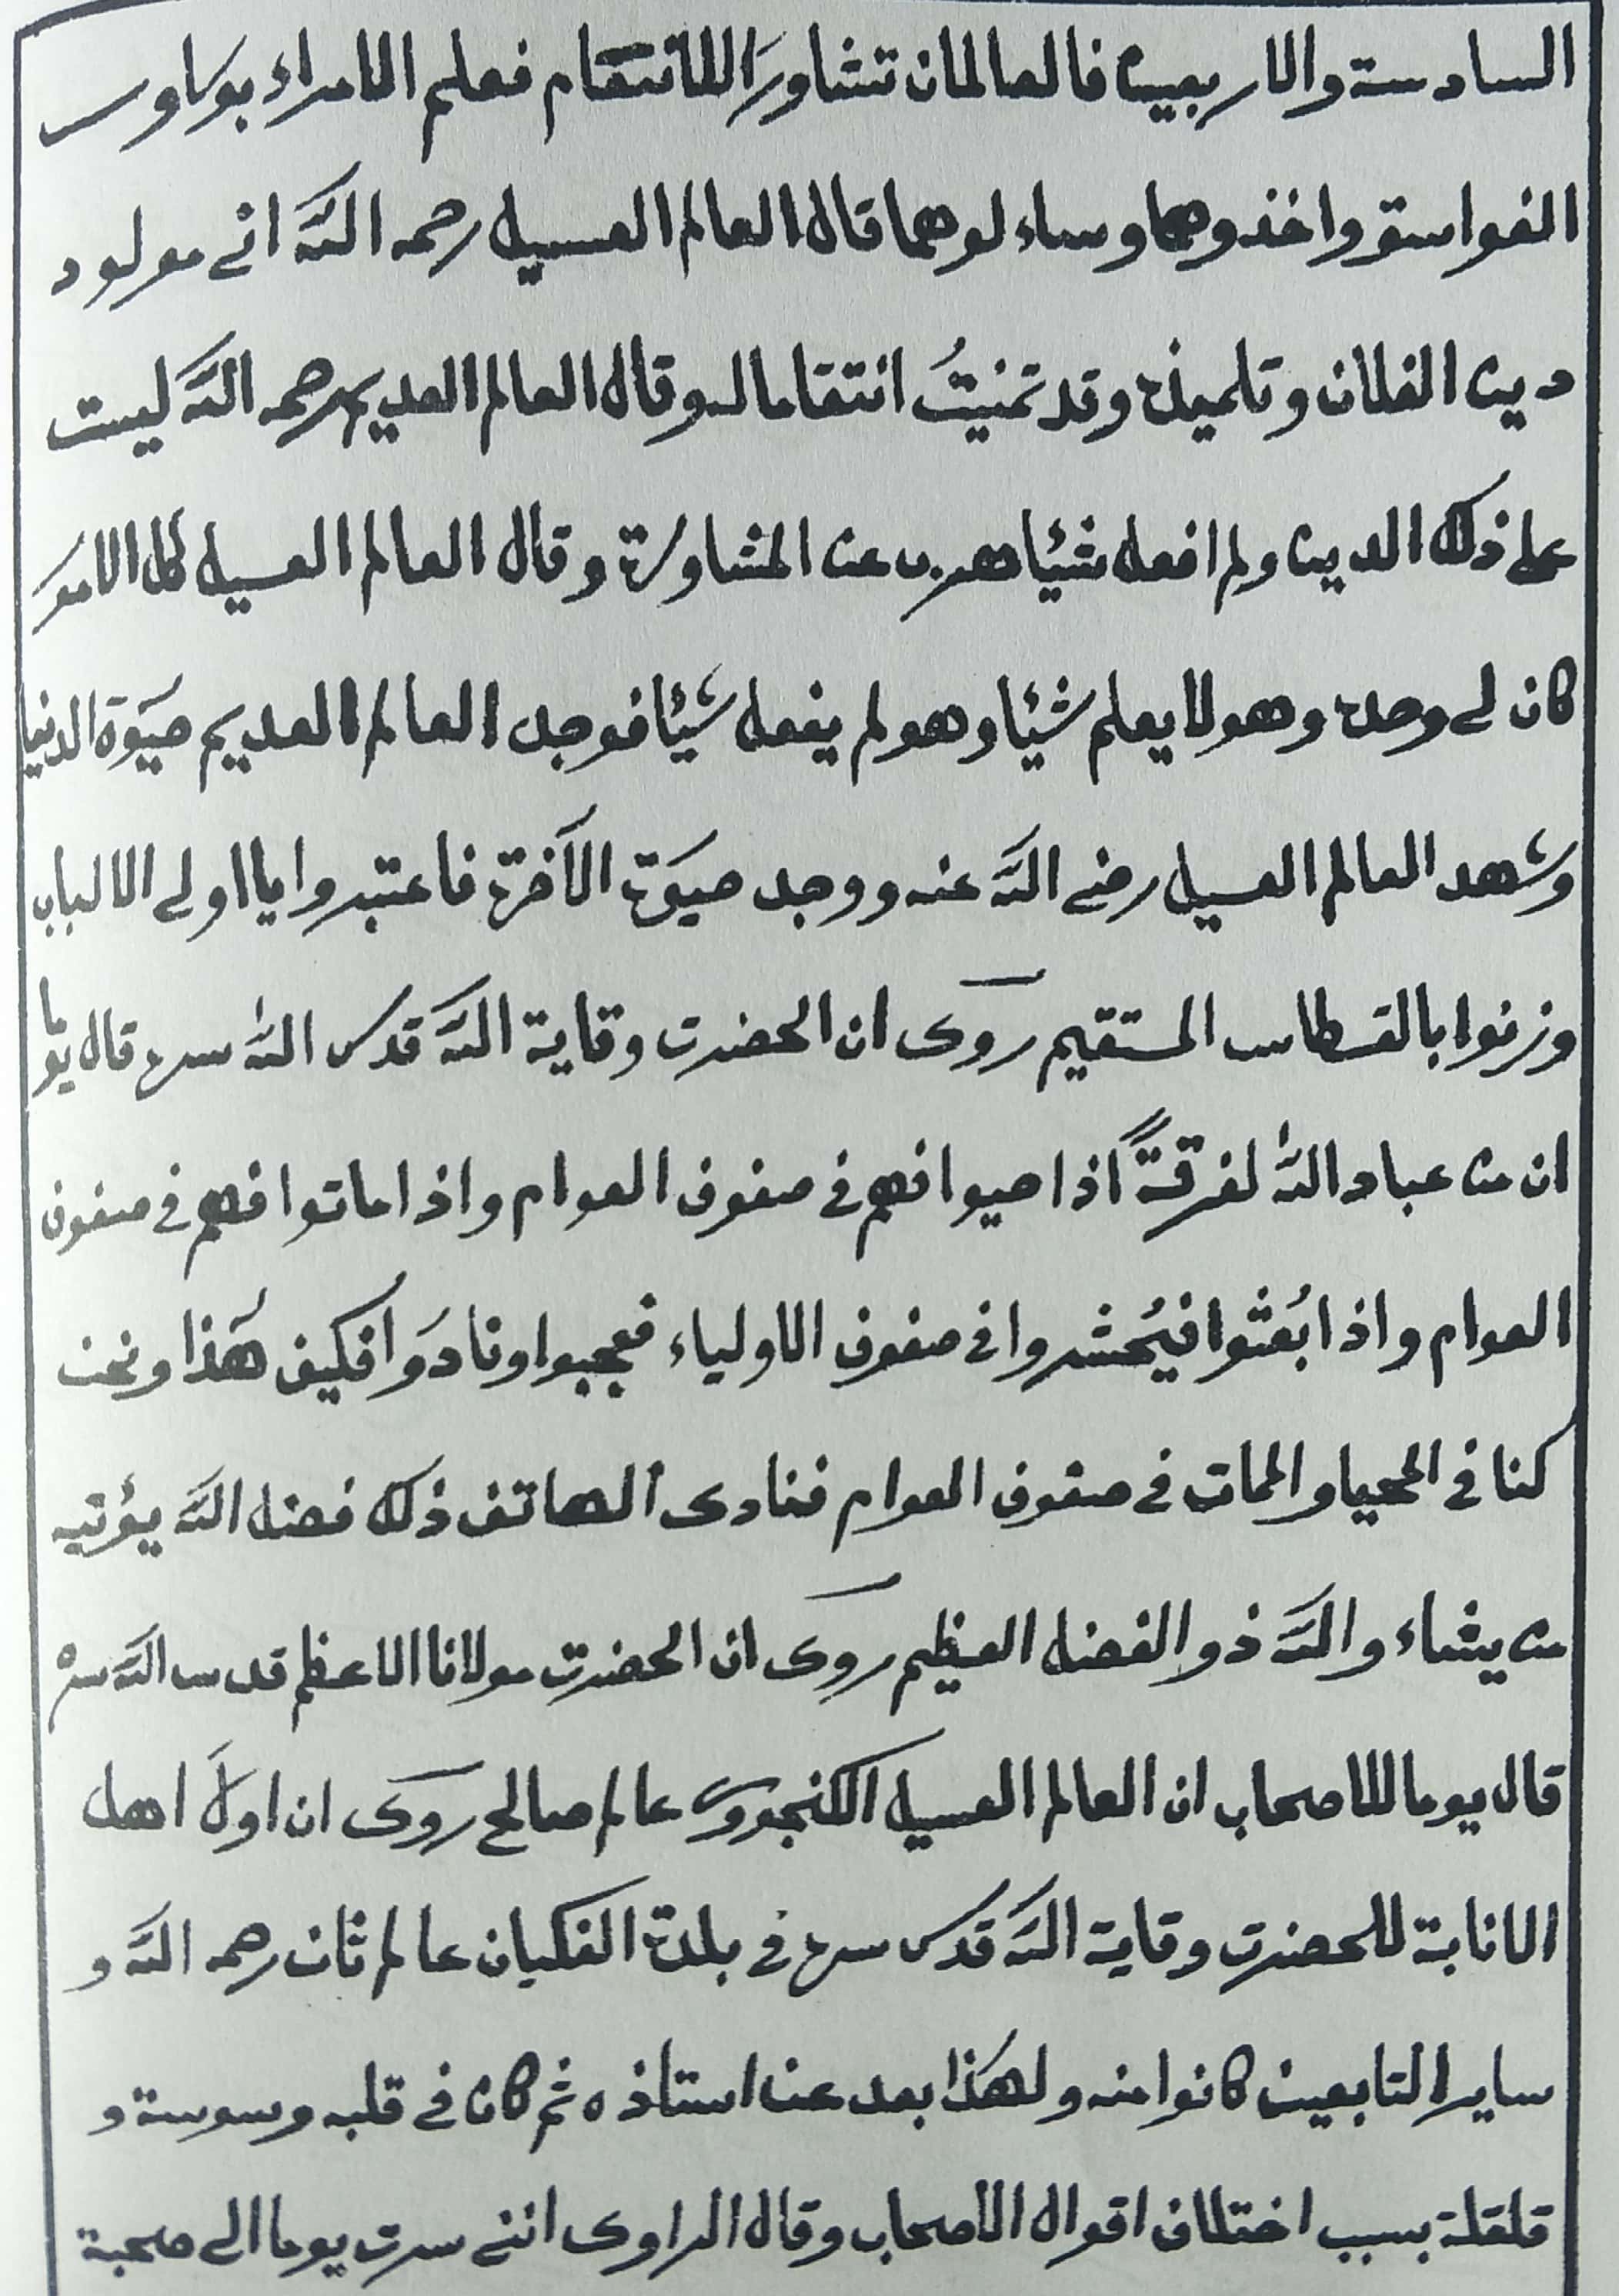 السادسة والاربعين فالعالمان تشاورَا للانتقام فعلم الامراء بوساوس
الفواسق واخذوهما وساءلوهما قال العالم العسيلي رحمه اللَّه انى مولود
دين الفلان وتلميذه وقد تمنيتُ انتقاما له وقال العالم العديم رحمه اللَّه ليست
على ذلك الدين ولم افعل شيئا عن المشاورة وقال العالم العسيلي كل الامور
كان لى وحده وهو لا يعلم شيئا وهو لم يفعل شيئا فوجد العالم العديم حيَوة الدنيا
وشهد العالم العسيلي رضى اللَّه عنه ووجد حيَوة الآخرة فاعتبروا يا اولى الالباب
وزنوا بالقسطاس المستقيم روى ان الحضرت وقاية اللَّه قدس اللّٰه سره قال يوما
ان من عباد اللّٰه لفرقةً اذا حيوا فهم فى صفوف العوام واذا ماتوا فهم فى صفوف
العوام واذا بُعثوا فيُحشروا فى صفوف الاولياء فعجبوا ونادَوا فكيف هَذا ونحن
كنا فى المحيا والممات فى صفوف العوام فنادى الهاتف ذلك فضل اللَّه يؤتيه
من يشاء واللَّه ذو الفضل العظيم روى ان الحضرت مولانا الاعظم قدس اللَّه سره
قال يوما للاصحاب ان العالم العسيلي الكنجوى عالم صالح روى ان اولَ اهل
الانابة للحضرت وقاية اللَّه قدس سره فى بلدة الفكيان عالم ثان رحمه اللَّه و
ساير التابعين كانوا منه ولهَذا بعد عن استاذه ثم كان فى قلبه وسوسة و
قلقلة بسبب اختلاف اقوال الاصحاب وقال الراوى اننى سرت يوما الى صحبة